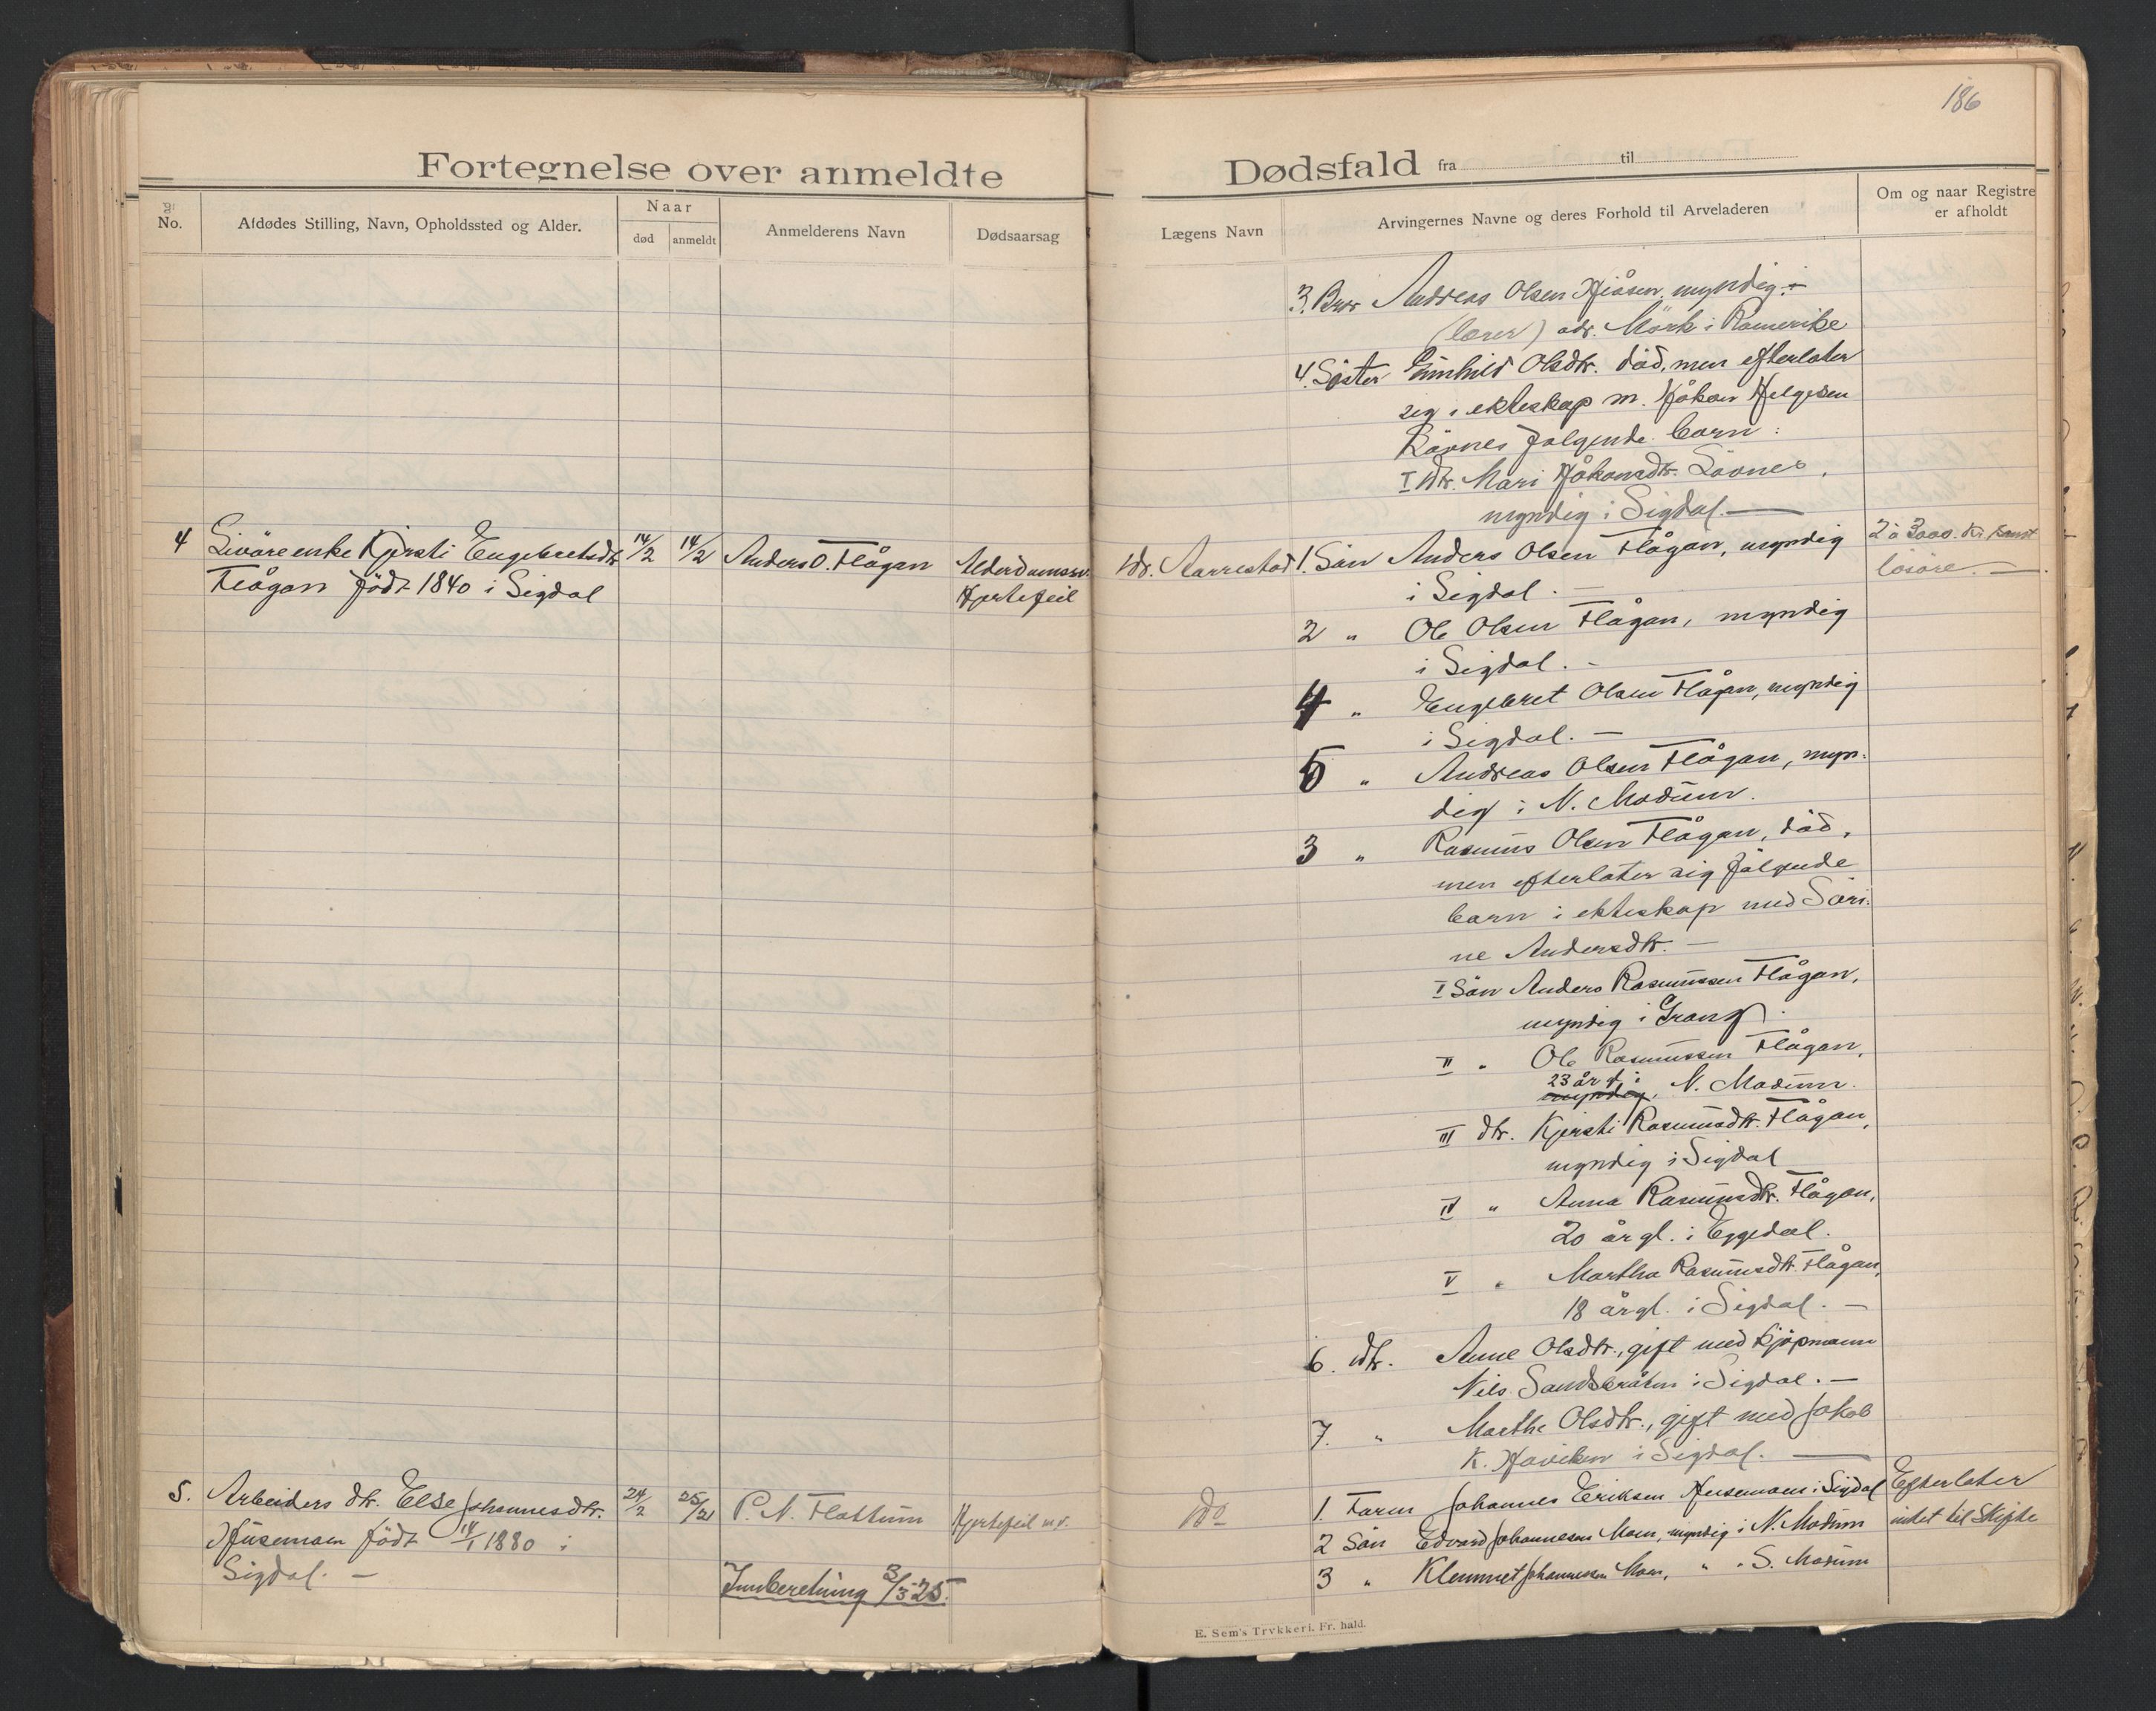 186
Fortegnelse over anmeldte
Dødsfald fra til
No.
Afdødes Stilling, Navn, Opholdssted og Alder.
Naar
død
anmeldt
Anmelderens Navn
Dødsaarsag
Lægens Navn
Arvingernes Navne og deres Forhold til Arveladeren
Om og naar Registre
er afholdt
3. Bror Andreas Olsen myndig i
(lærer) adr. Mörk i Romerike
4. Söster Gunhild Olsdtr. död, men efterlater
sig i ekteskap m. Håkon Helgesen
følgende barn:
I dtr. Mari Håkonsdtr. Lövnes,
myndig i Sigdal. —
4 Livöreenke Kjersti Engebretsdtr.
Flågan födt 1840 i Sigdal
14/2
14/2
Anders O. Flågan
Alderdomssv.
Hjertefeil
dr. Aarrestad
1. Sön Anders Olsen Flågan, myndig
i Sigdal. —
2 à 3000. kr. samt
lösöre. —
2 " Ole Olsen Flågan, myndig
i Sigdal. —
4 " Engebret Olsen Flågan, myndig
i Sigdal. —
5 " Andreas Olsen Flågan, myn-
dig i N. Modum.
3 " Rasmus Olsen Flågan, död,
men efterlater sig fölgende
barn i ekteskap med Söri-
ne Andersdtr. —
I Sön Anders Rasmussen Flågan,
myndig i
II " Ole Rasmussen Flågan,
23 år
myndig, N. Modum.
III dtr. Kjersti Rasmusdtr. Flågan,
myndig i Sigdal
IV " Anna Rasmusdtr. Flågan,
20 år gl. i Eggedal.
V " Martha Rasmusdtr. Flågan,
18 år gl. i Sigdal. —
6. dtr. Anne Olsdtr., gift med kjöpmann
Nils Sandsbråten i Sigdal. —
7. " Marthe Olsdtr., gift med Jakob
K. Haviken i Sigdal. —
5. Arbeiders dtr. Else Johannesdtr.
Husemoen födt 14/1 1880 i
Sigdal. —
24/2
25/2
P. N. Flattum
Hjertefeil m.v.
do
1. Faren Johannes Eriksen Husemoen i Sigdal
2 Sön Edvard Johannesen Moen, myndig i N. Modum
3 " Klemmet Johannesen Moen, " " S. Modum
Efterlater
intet til Skifte
Innberetning 3/3 25.
E. Sem's Trykkeri. Fr. hald.